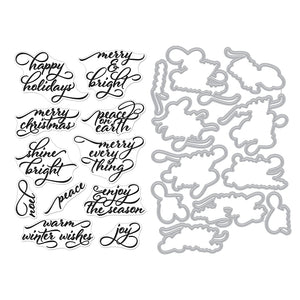 happy
holidays
merry
&
bright
merry
christmas
peace on
earth
shine
bright
merry
every
thing
noel
peace
enjoy
the season
warm
winter wishes
joy